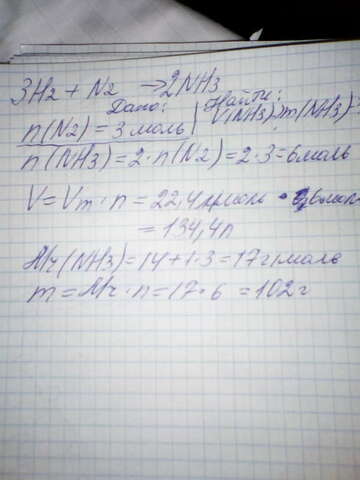 3H2 + N2 → 2NH3
Дано: Найти:
n(N2) = 3 моль V(NH3), m(NH3)-?
n(NH3) = 2·n(N2) = 2·3 = 6 моль
V = Vm · n = 22,4 л/моль · 6 моль
= 134,4 л
Mr(NH3) = 14 + 1·3 = 17 г/моль
m = Mr · n = 17·6 = 102 г